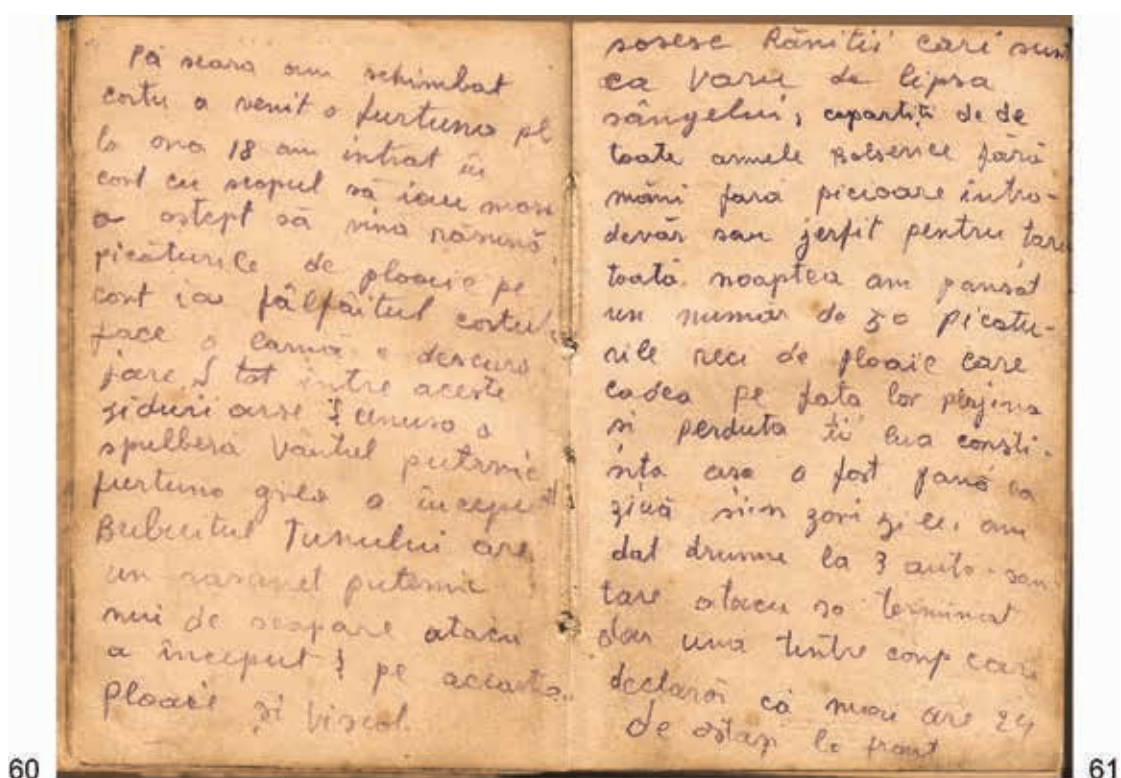 Pă seara am schimbat
cortu a venit o furtuna pl
la ora 18 am intrat în
cort cu scopul să iau masa
a astept să vina răsună
picăturile de ploaie pe
cort iar fâlfâitul cortului
face o larmă o descura
jare tot intre aceste
ziduri arse cenusa o
spulberă vântul puternic
furtuna grea a început
Bubuitul Tunului are
un rasunet puternic
nui de scapare atacu
a început pe aceasta
ploaie și viscol.
sosesc Răniții cari sunt
ca Varu de lipsa
sângelui, de de
toate armele Bolsevice fără
mâni fara picioare intro-
devăr sau jerfit pentru țara
toată noaptea am pansat
un numar de 50 Picatu-
rile reci de ploaie care
cadea pe fata lor
si perduta ii lua consti-
inta asa a fost pană la
ziuă si in zori zilei am
dat drumu la 3 auto-sani
tare atacu so terminat
dar una tintre corp care
declară că mai are 24
de ostasi la front
60
61